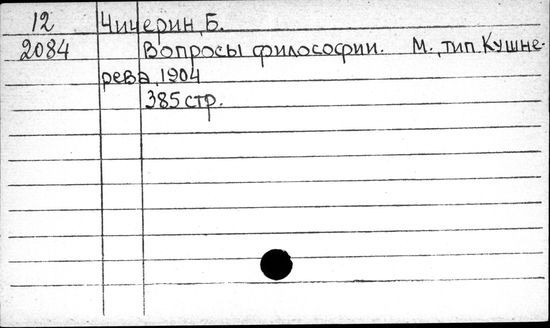 12 Чичерин, Б.
2084 Вопросы философии. М., тип. Кушне-
рева, 1904
385 стр.